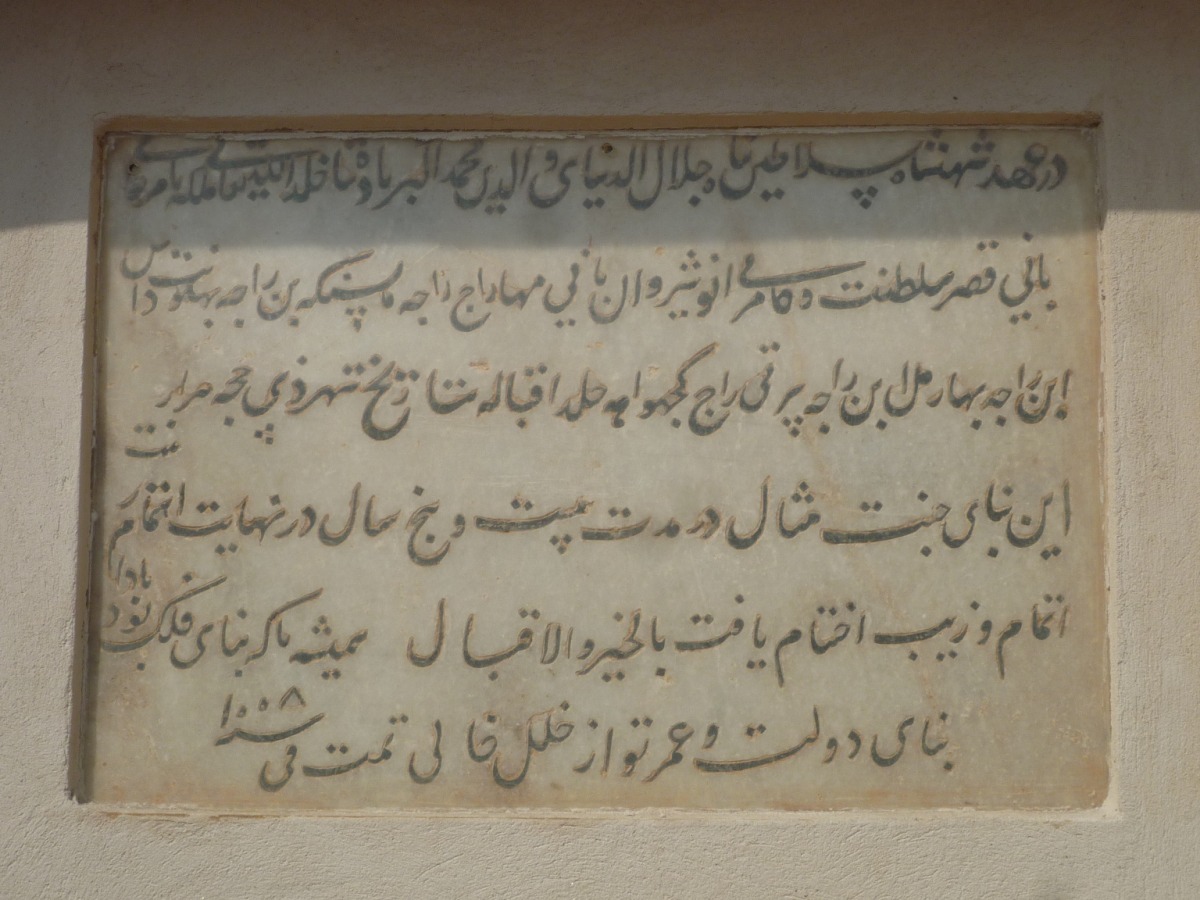 در عهد شهنشاه سلاطین پناه جلال الدنیای و الدین محمد اکبر بادشاه خلد الله تعالی ملکه بامر عالی
بانی قصر سلطنت و کامرانی انوشیروان ثانی مهاراج راجه مانسنگه بن راجه بهگونت داس
ابن راجه بهارمل بن راجه پرتی راج کچهواهه خلد اقباله بتاریخ شهر ذی حجه
این بنای جنت مثال در مدت بیست و پنج سال در نهایت
اتمام و زیب اختتام یافت بالخیر والاقبال همیشه تا که بنای فلک بود بادا
بنای دولت و عمر تو از خلل خالی تمت فی سنه ۱۰۰۸